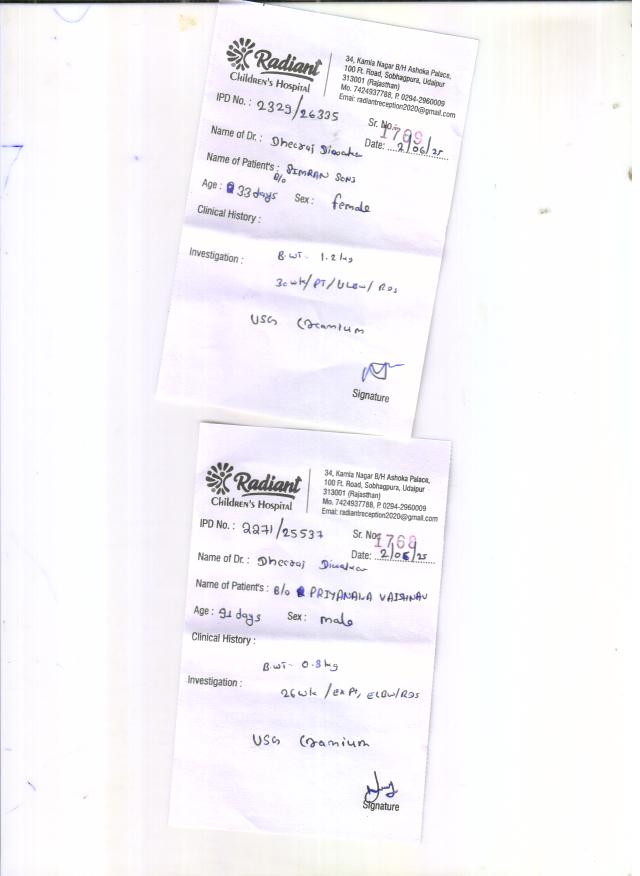 Radiant
Children's Hospital
34, Kamla Nagar B/H Ashoka Palace,
100 Ft. Road, Sobhagpura, Udaipur
313001 (Rajasthan)
Mo. 7424937788, P. 0294-2960009
Emai: radiantreception2020@gmail.com
IPD No. : 2329/26335
Sr. No.
Date: 2/06/25
Name of Dr. : Dheeraj Diwakar
Name of Patient's : B/o SIMRAN SONI
Age : 33 days Sex : female
Clinical History :
B.WT- 1.2 kg
Investigation :
30 wk/PT/VLBW/RDS
USG Cranium
Signature
Radiant
Children's Hospital
34, Kamla Nagar B/H Ashoka Palace,
100 Ft. Road, Sobhagpura, Udaipur
313001 (Rajasthan)
Mo. 7424937788, P. 0294-2960009
Emai: radiantreception2020@gmail.com
IPD No. : 2271/25537
Sr. No. 1768
Date: 2/06/25
Name of Dr. : Dheeraj Diwakar
Name of Patient's : B/o VAISHNAV
Age : days Sex : male
Clinical History :
B.WT- 0.8 kg
Investigation :
26 wk /EXPT, ELBW/RDS
USG Cranium
Signature